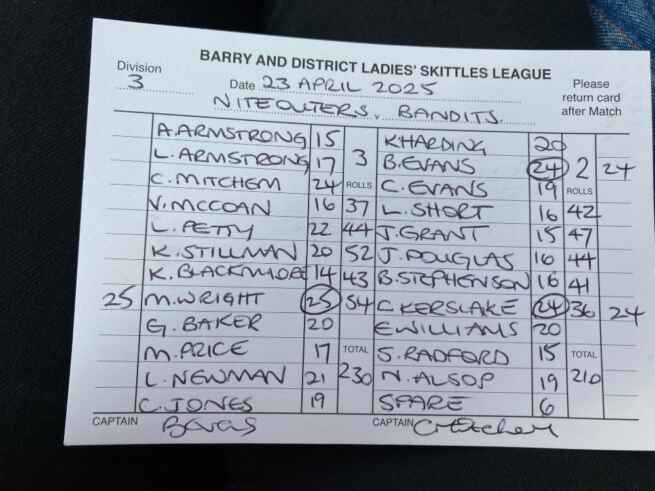 BARRY AND DISTRICT LADIES' SKITTLES LEAGUE
Division 3 Date 23 APRIL 2025 Please return card after Match
NITEOUTERS v BANDITS
A. ARMSTRONG 15 3 K HARDING 20 2
L. ARMSTRONG 17 B. EVANS 24 24
C. MITCHEM 24 ROLLS C. EVANS 19 ROLLS
V. MCCOAN 16 37 L. SHORT 16 42
L. PETTY 22 44 J. GRANT 15 47
K. STILLMAN 20 52 J. DOUGLAS 16 44
K. BLACKMORE 14 43 B. STEPHENSON 16 41
25 M. WRIGHT 25 54 C KERSLAKE 24 36 24
G. BAKER 20 E WILLIAMS 20
M. PRICE 17 TOTAL S. RADFORD 15 TOTAL
L. NEWMAN 21 230 N. ALSOP 19 210
C. JONES 19 SPARE 6
CAPTAIN CAPTAIN